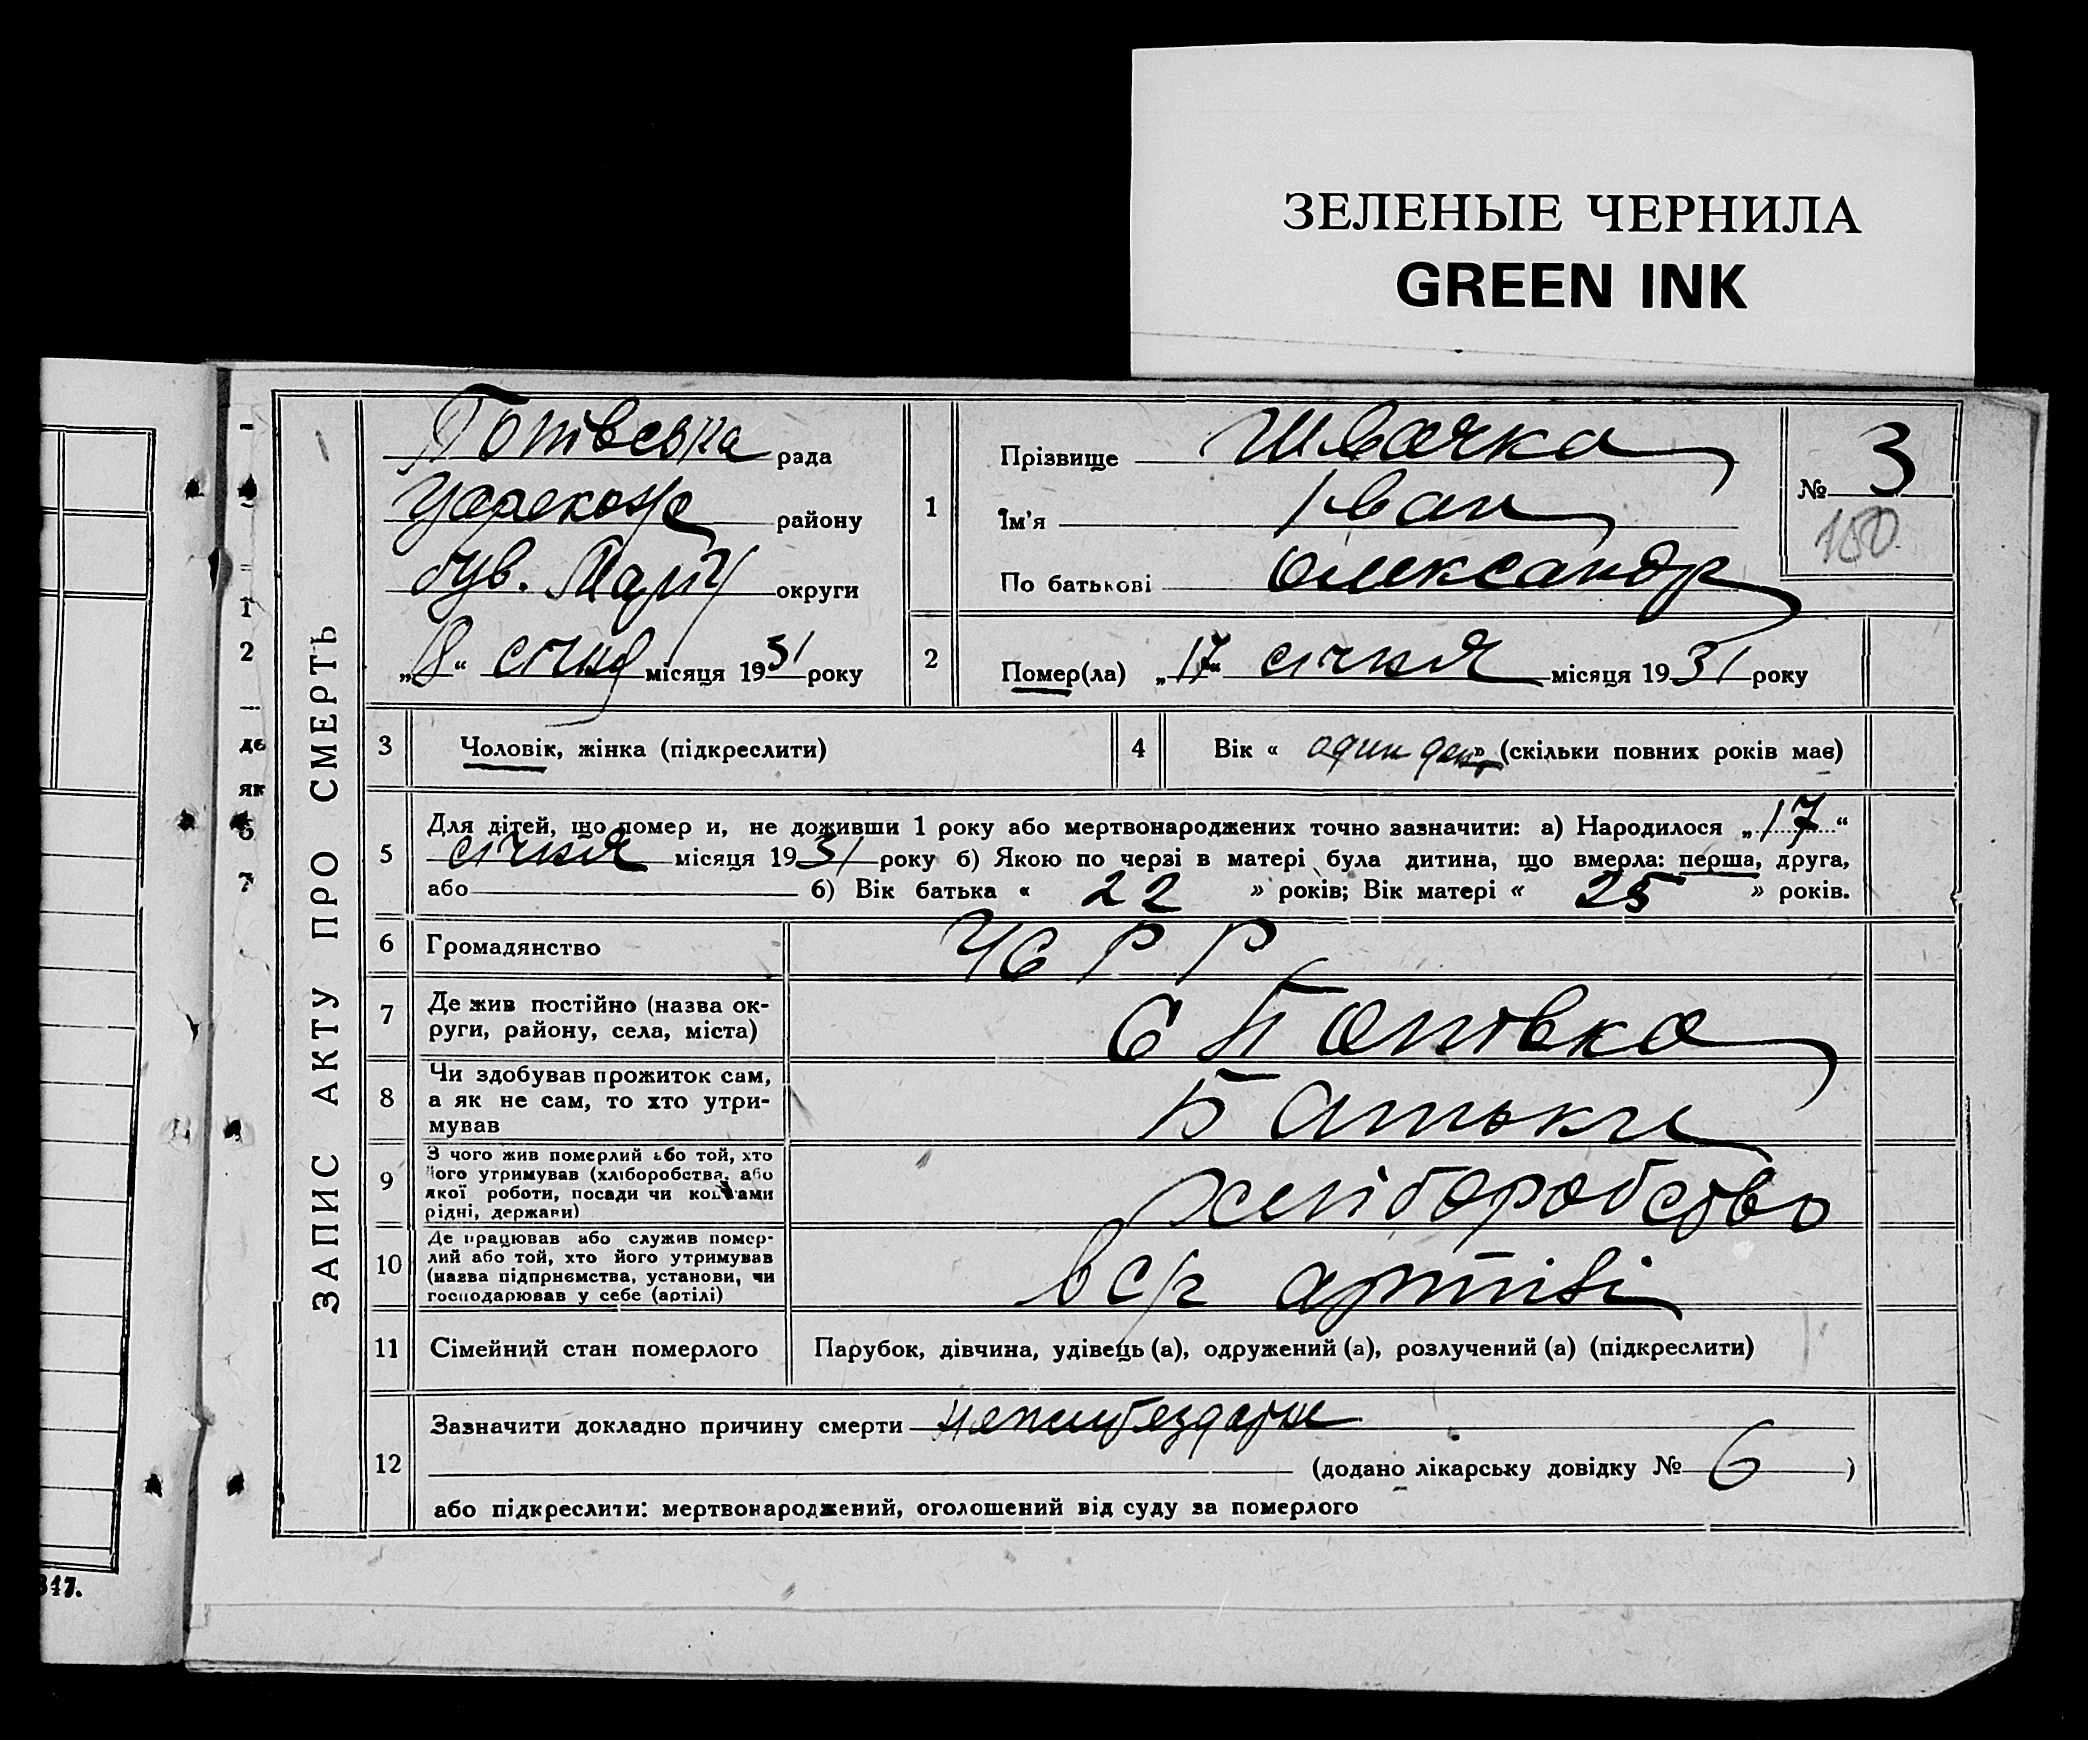 ЗЕЛЕНЫЕ ЧЕРНИЛА
GREEN INK
ЗАПИС АКТУ ПРО СМЕРТЬ
рада
району
був. округи
„18“ січня місяця 1931 року
1
Прізвище Швачка
Ім'я Іван
По батькові Олександр
№ 3
150
2
Помер(ла) „17“ січня місяця 1931 року
3
Чоловік, жінка (підкреслити)
4
Вік « один день » (скільки повних років має)
5
Для дітей, що помер и, не доживши 1 року або мертвонароджених точно зазначити: а) Народилося „17“
січня місяця 1931 року б) Якою по черзі в матері була дитина, що вмерла: перша, друга,
або б) Вік батька « 22 » років; Вік матері « 25 » років.
6
Громадянство
УСРР
7
Де жив постійно (назва ок-
руги, району, села, міста)
С Потовка
8
Чи здобував прожиток сам,
а як не сам, то хто утри-
мував
Батьки
9
З чого жив померлий або той, хто
його утримував (хліборобства, або
якої роботи, посади чи коштами
рідні, держави)
хліборобство
10
Де працював або служив помер-
лий або той, хто його утримував
(назва підприємства, установи, чи
господарював у себе (артілі)
в с/г артілі
11
Сімейний стан померлого
Парубок, дівчина, удівець (а), одружений (а), розлучений (а) (підкреслити)
12
Зазначити докладно причину смерти
(додано лікарську довідку № 6)
або підкреслити: мертвонароджений, оголошений від суду за померлого
1
2
де
як
6
7
347.